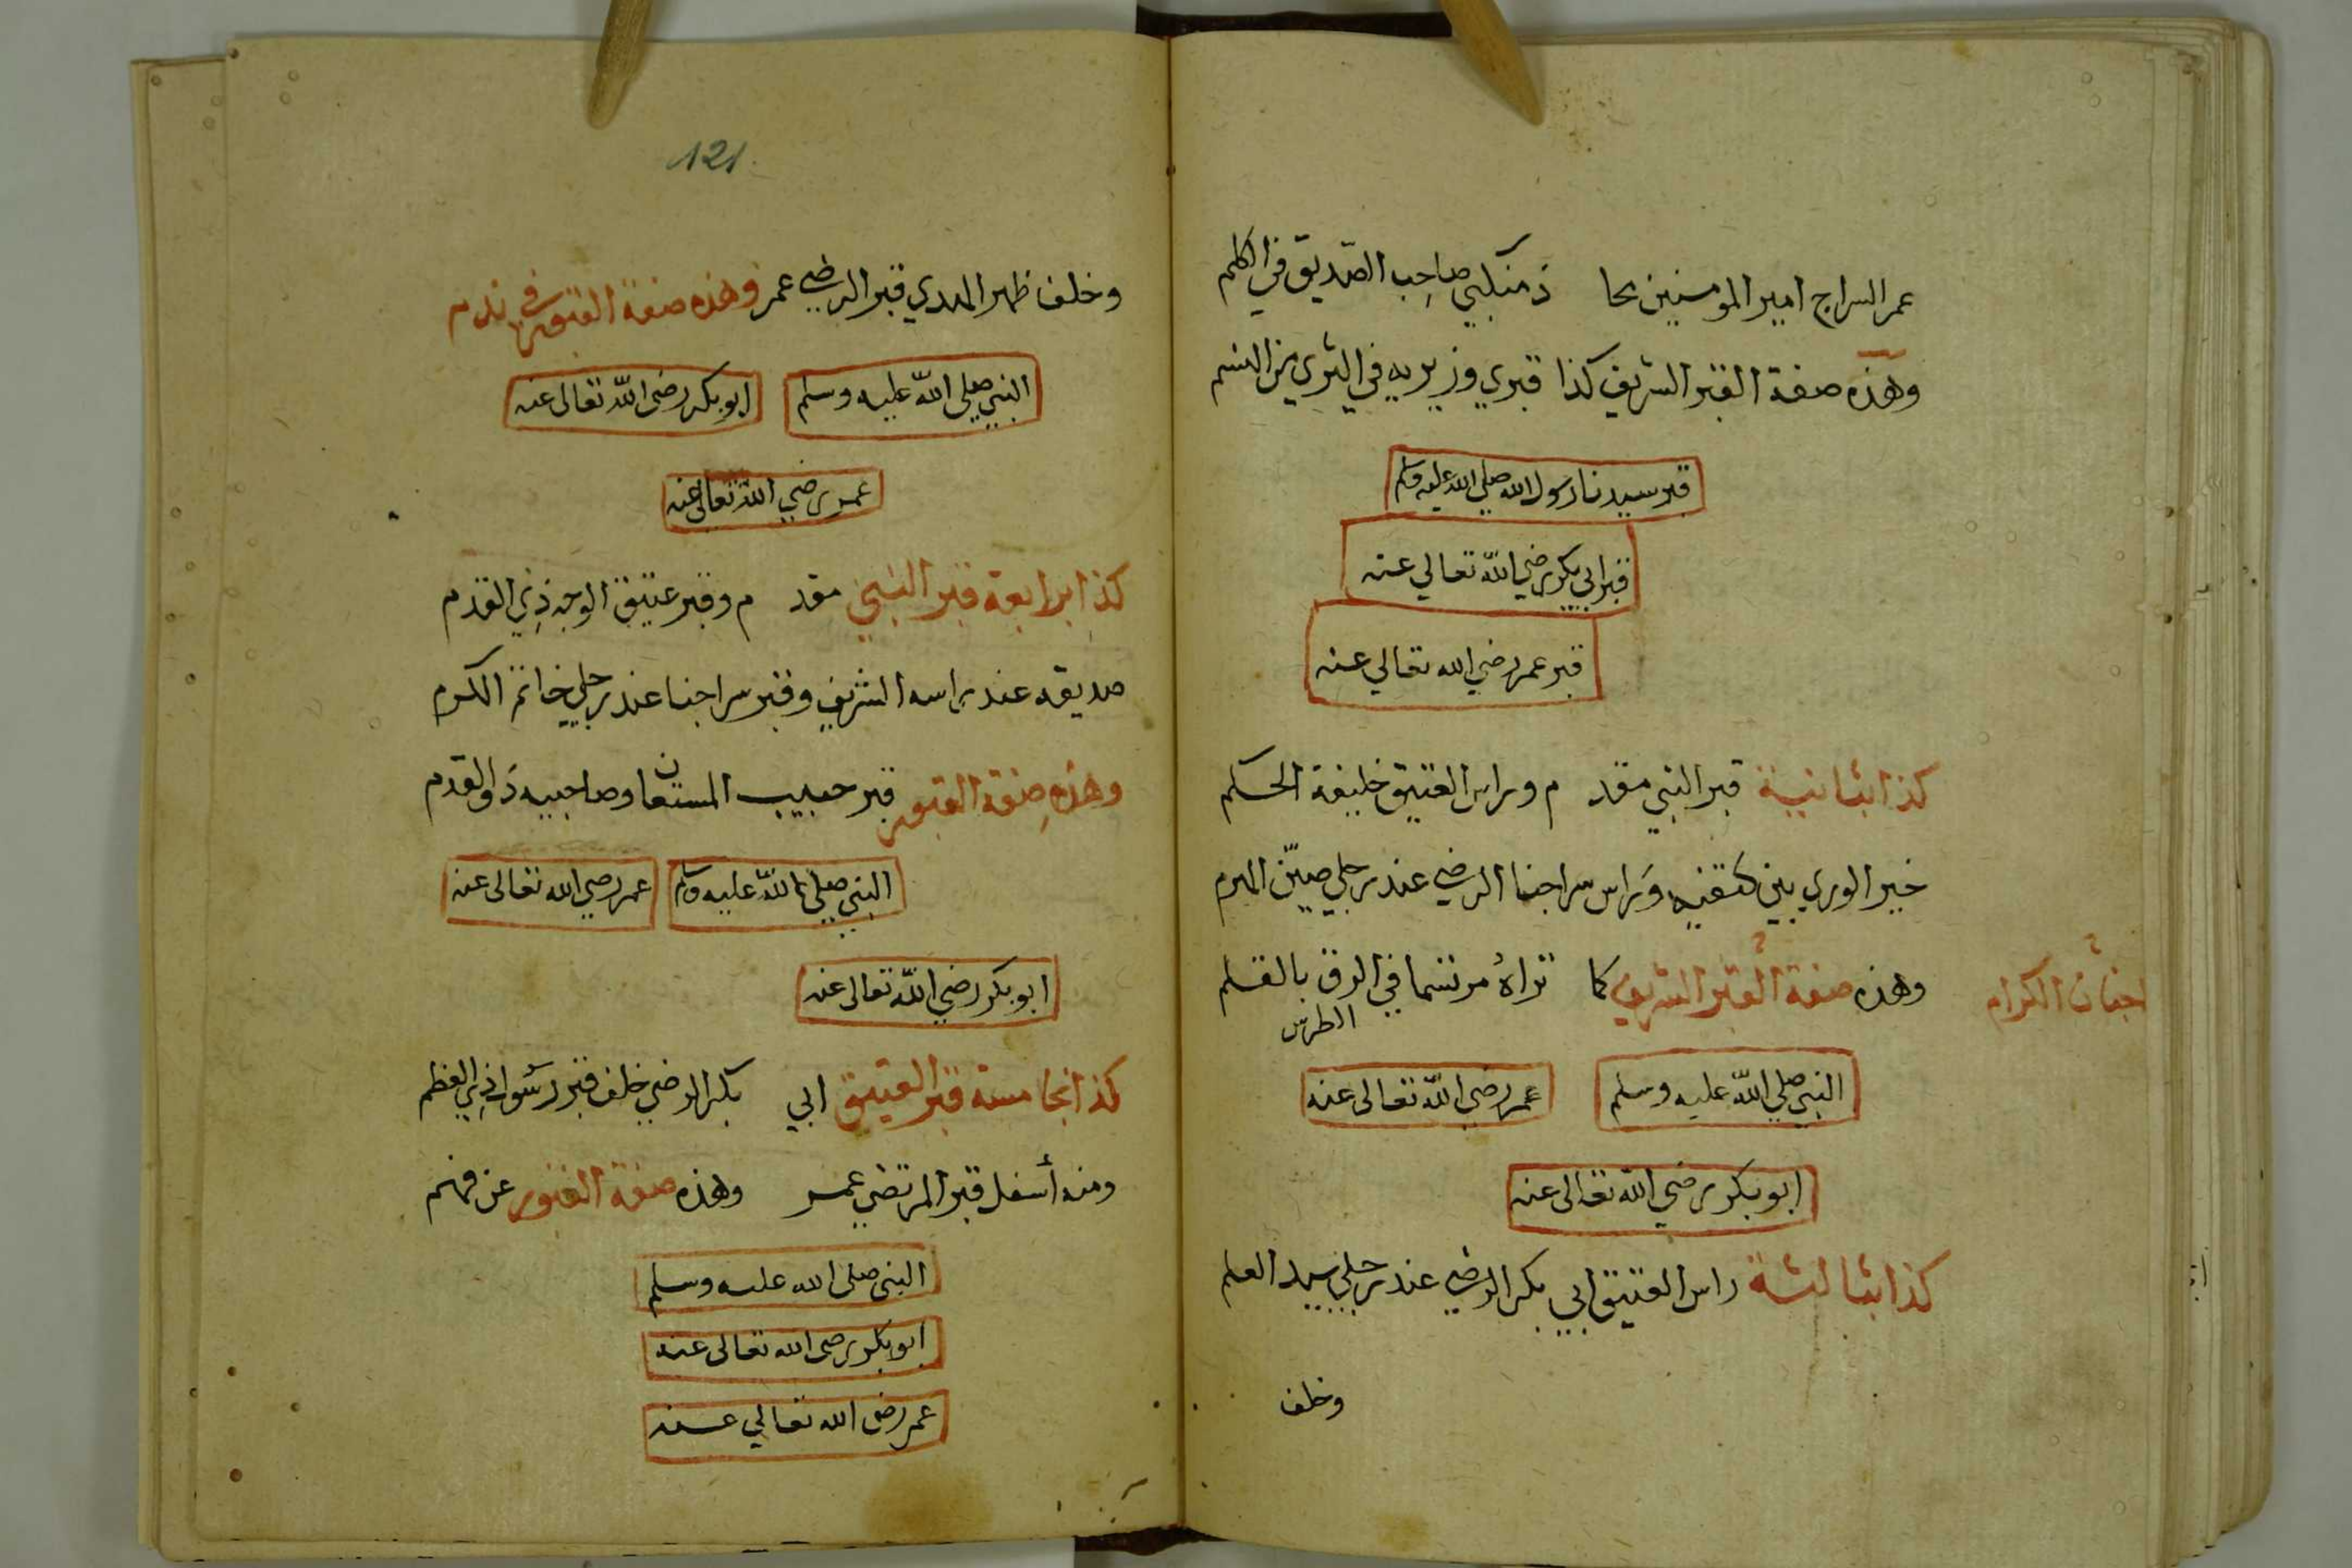 عمر السراج امير المومنين محا ذ منكبي صاحب الصديق في الكلم
وهذه صفة القبر الشريف كذا قبري وزيريه في الثري من النسم
قبر سيدنا رسول الله صلي الله عليه وسلم
قبر ابي بكر رضي الله تعالي عنه
قبر عمر رضي الله تعالي عنه
كذا بثانية قبر النبي مقد م وراس العتيق خليفة الحكم
خير الوري بين كتفيه وراس سراجنا الرضي عند رجلي
وهذه صفة القبر الشريف كما تراه مرتسما في الرق بالقلم
الطرس
الكرام
النبي صلي الله عليه وسلم
عمر رضي الله تعالى عنه
ابو بكر رضي الله تعالى عنه
كذا بثالثة راس العتيق ابي بكر الرضي عند رجلي سيد العلم
وخلف
121
وخلف ظهر المهدي قبر الرضي عمر وهذه صفة القبور في ندم
النبي صلى الله عليه وسلم
ابو بكر رضى الله تعالى عنه
عمر رضي الله تعالى عنه
كذا برابعة قبر النبي مقد م وقبر عتيق الوجه ذي القدم
صديقه عند راسه الشريف وقبر سراجنا عند رجلي خاتم الكرم
وهذه صفة القبور قبر حبيب المستعان وصاحبيه ذوا القدم
النبي صلى الله عليه وسلم
عمر رضي الله تعالى عنه
ابو بكر رضي الله تعالى عنه
كذا بخامسة قبر العتيق ابي بكر الرضي خلف قبر رسول ذي العظم
ومنه أسفل قبر المرتضي عمر وهذه صفة القبور عن فهم
النبي صلى الله عليه وسلم
ابو بكر رضى الله تعالى عنه
عمر رضى الله تعالي عنه